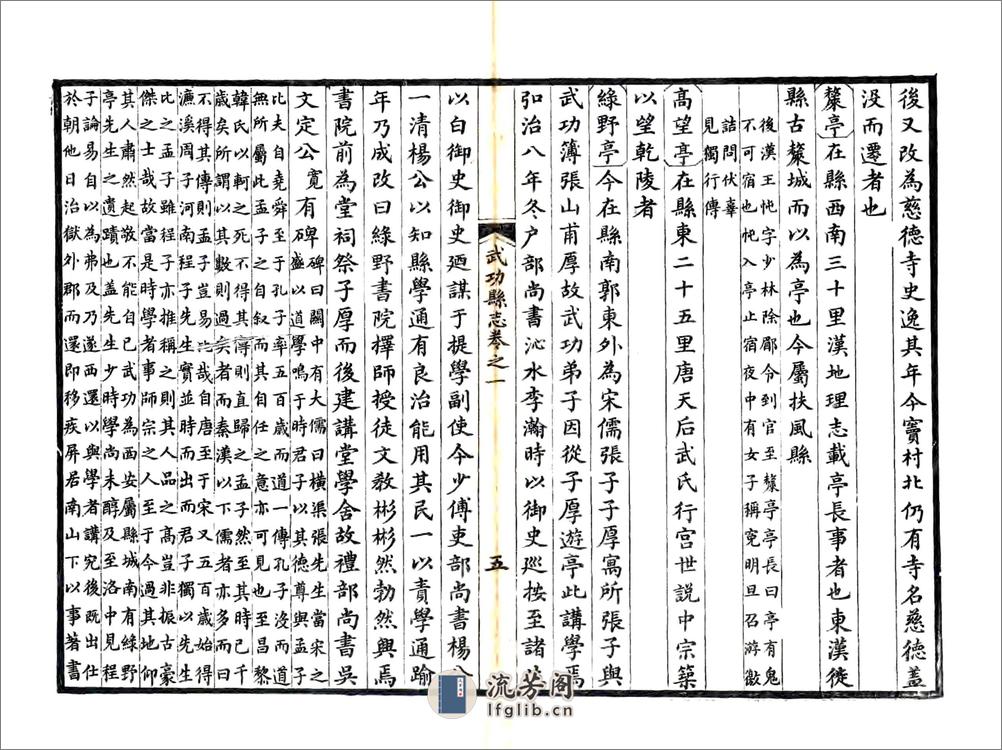 後又改為慈德寺史逸其年今竇村北仍有寺名慈德蓋
没而遷者也
斄亭在縣西南三十里漢地理志載亭長事者也東漢徙
縣古斄城而以為亭也今屬扶風縣
後漢王忳字少林除郿令到官至斄亭亭長曰亭有鬼
不可宿也忳入亭止宿夜中有女子稱寃明旦召游徼
詰問伏辜
見獨行傳
高望亭在縣東二十五里唐天后武氏行宫世説中宗築
以望乾陵者
綠野亭今在縣南郭東外為宋儒張子子厚寓所張子與
武功簿張山甫厚故武功弟子因從子厚遊亭此講學焉
弘治八年冬户部尚書沁水李瀚時以御史廵按至諸生
武功縣志卷之一
五
以白御史御史廼謀于提學副使今少傅吏部尚書楊公
一清楊公以知縣學通有良治能用其民一以責學通踰
年乃成改曰綠野書院擇師授徒文教彬彬然勃然興焉
書院前為堂祠祭子厚而後建講堂學舍故禮部尚書吳
文定公寛有碑
碑曰關中有大儒曰橫渠張先生當宋之
盛以道學鳴于時君子以其德尊與孟子
比夫自堯舜至于孔子率五百歲而道一傳孔子没而道
無所屬此孟子之自叙而其自任之意亦可見也至昌黎
韓氏以軻之死不得其傳則直歸之孟子然至其時已千
歲矣所謂以其數則過矣者而秦漢以下儒者亦多而曰
不得其傳則孟子豈易比哉自唐至于宋又五百歲始得
濂溪周子河南程子先生實並時而出而君子獨以先生
比之孟子雖程子亦推稱之則其人品之高豈非振古豪
傑之士哉故當是時學者事師宗之人至于今過其地仰
其人肅然起敬不能自已武功為西安屬縣城南有綠野
亭先生之遺蹟也蓋先生少時學尚未醇及至洛中見程
子論易自以為弗及乃遂西還以與學者講究後既出仕
於朝他日治獄外郡而還即移疾屏居南山下以事著書
流芳阁
lfglib.cn